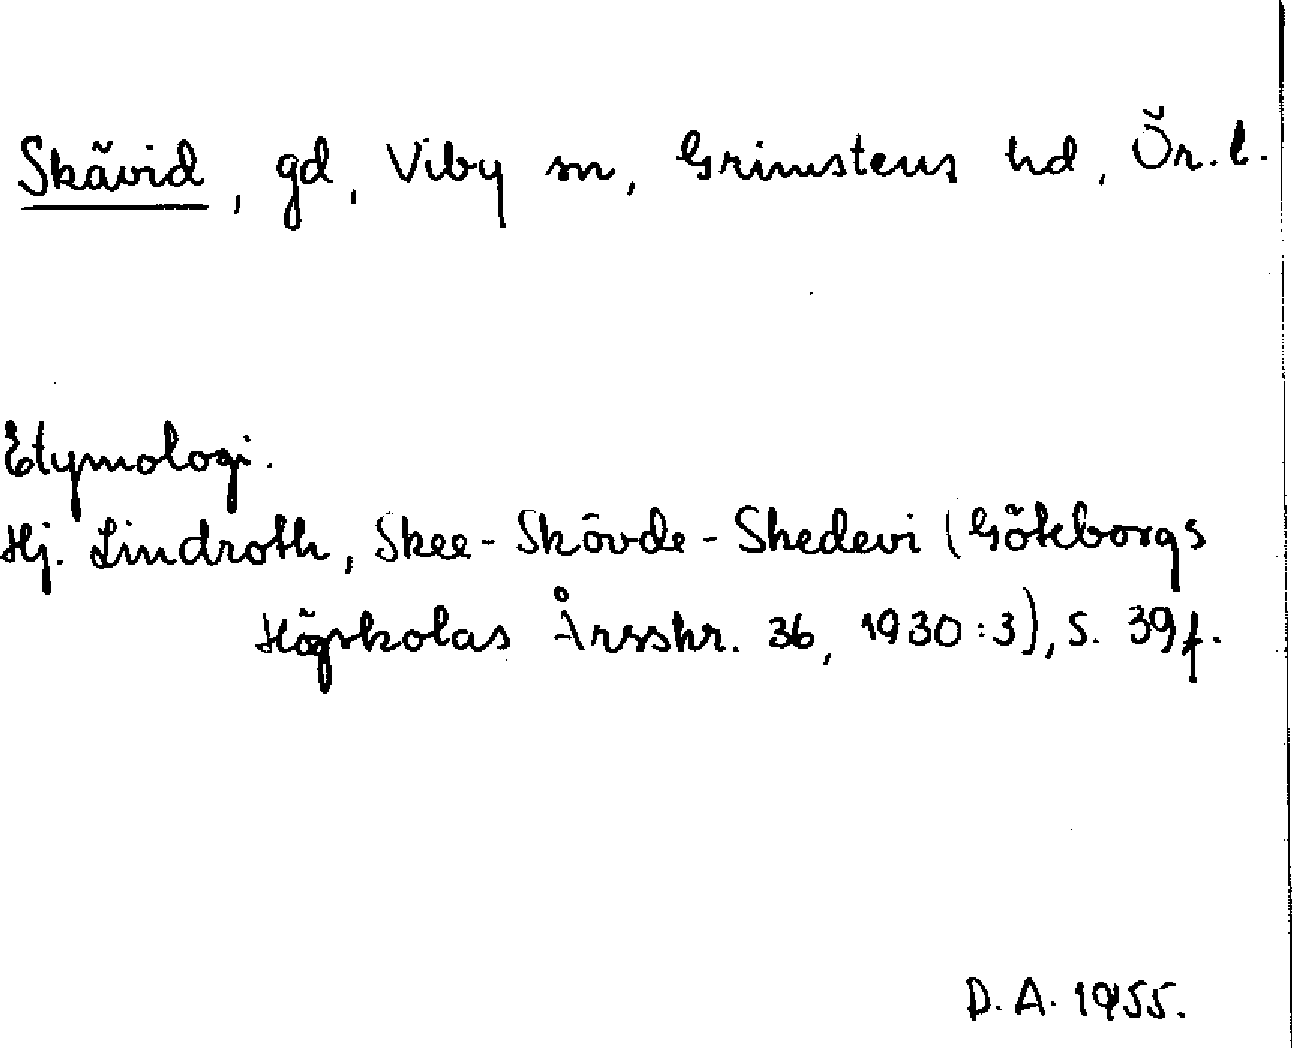 Skävid, gd, Viby sn, Grimstens hd, Ör. l.
Etymologi.
Hj. Lindroth, Skee-Skövde-Skedevi (Göteborgs
Högskolas Årsskr. 36, 1930:3), s. 39 f.
D. A. 1955.